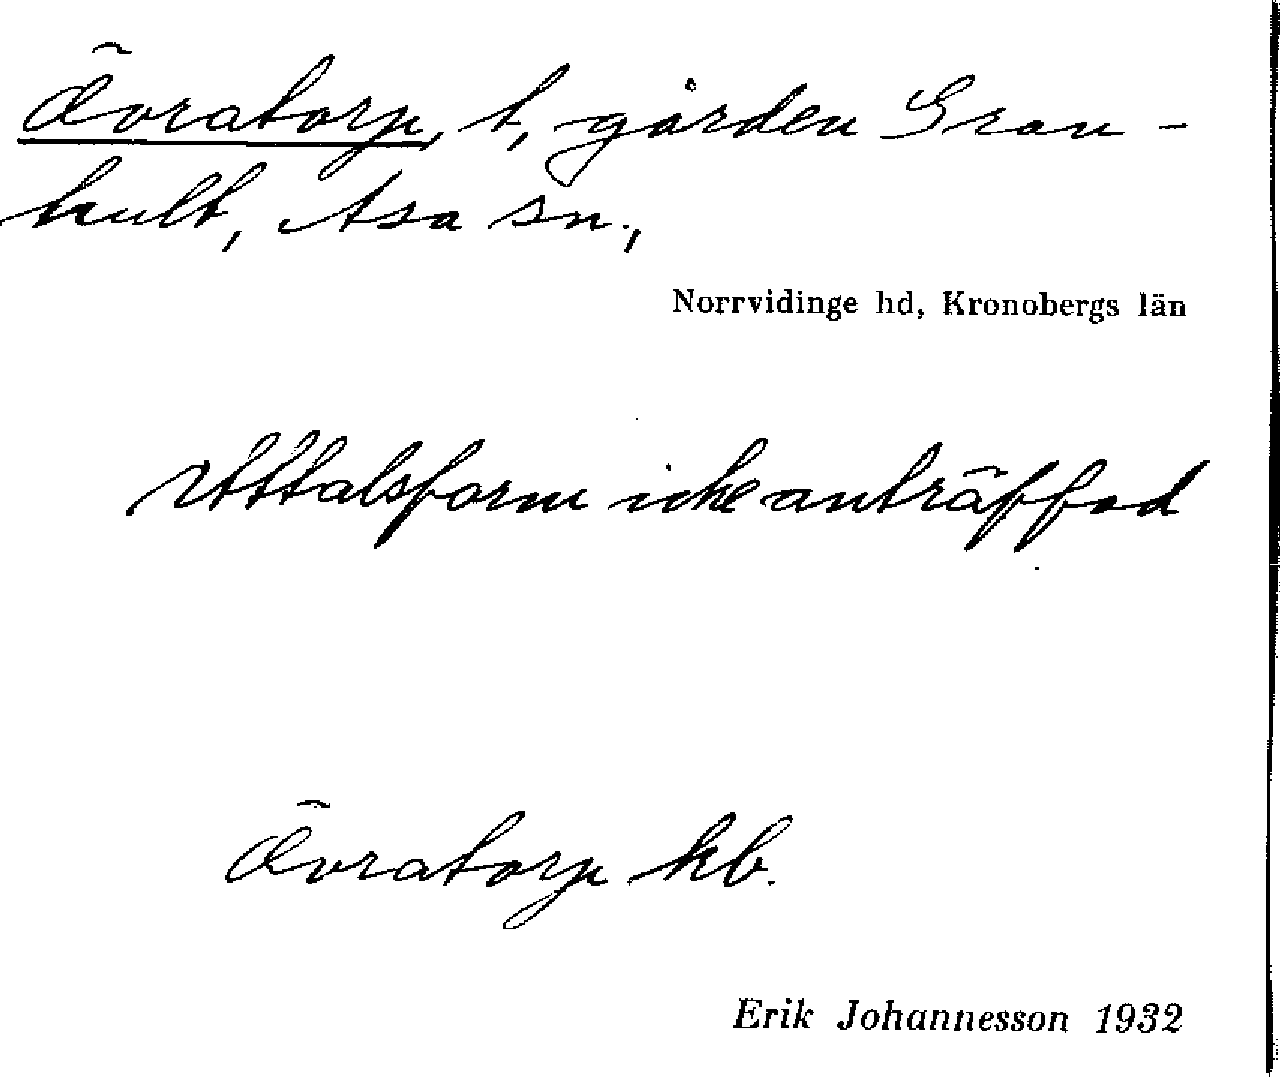 Övratorp, t, gården Gran-
hult, Asa sn.,
Norrvidinge hd, Kronobergs län
Uttalsform icke anträffad
Övratorp kb.
Erik Johannesson 1932